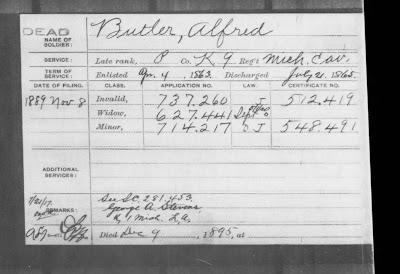 DEAD
NAME OF SOLDIER: Butler, Alfred
SERVICE: Late rank, P Co. K, 9 Reg't Mich. Cav.
TERM OF SERVICE: Enlisted Apr. 4, 1863. Discharged July 21, 1865.
DATE OF FILING. CLASS. APPLICATION NO. LAW. CERTIFICATE NO.
1889 Nov 8 Invalid, 737.260 J 512.419
Widow, 627.441
Minor, 714.217 O J 548.491
ADDITIONAL SERVICES:
REMARKS: See S.C. 281,453.
George A. Stevens
K, 1 Mich. L.A.
Died Dec 9, 1895, at